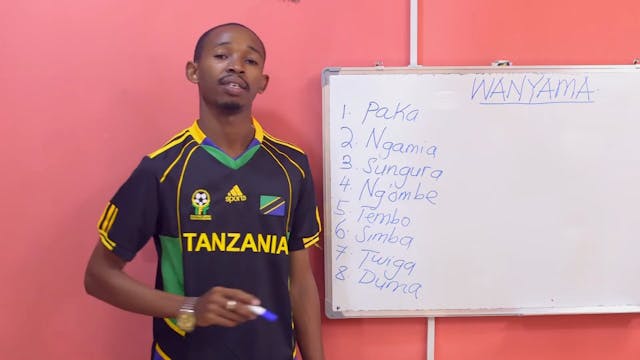 WANYAMA
1. Paka
2. Ngamia
3. Sungura
4. Ng'ombe
5. Tembo
6. Simba
7. Twiga
8 Duma
adidas
sports
TANZANIA